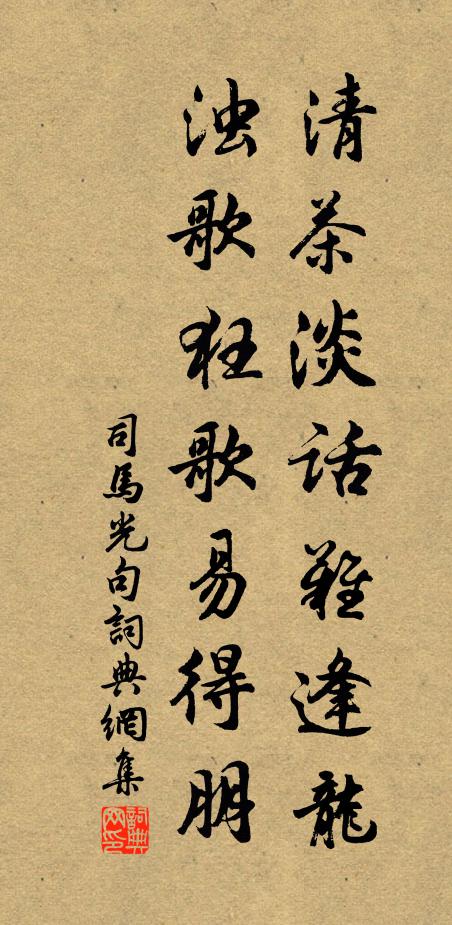 清茶淡話難逢龍
浊歌狂歌易得朋
司馬光句詞典網集
詞典
网印